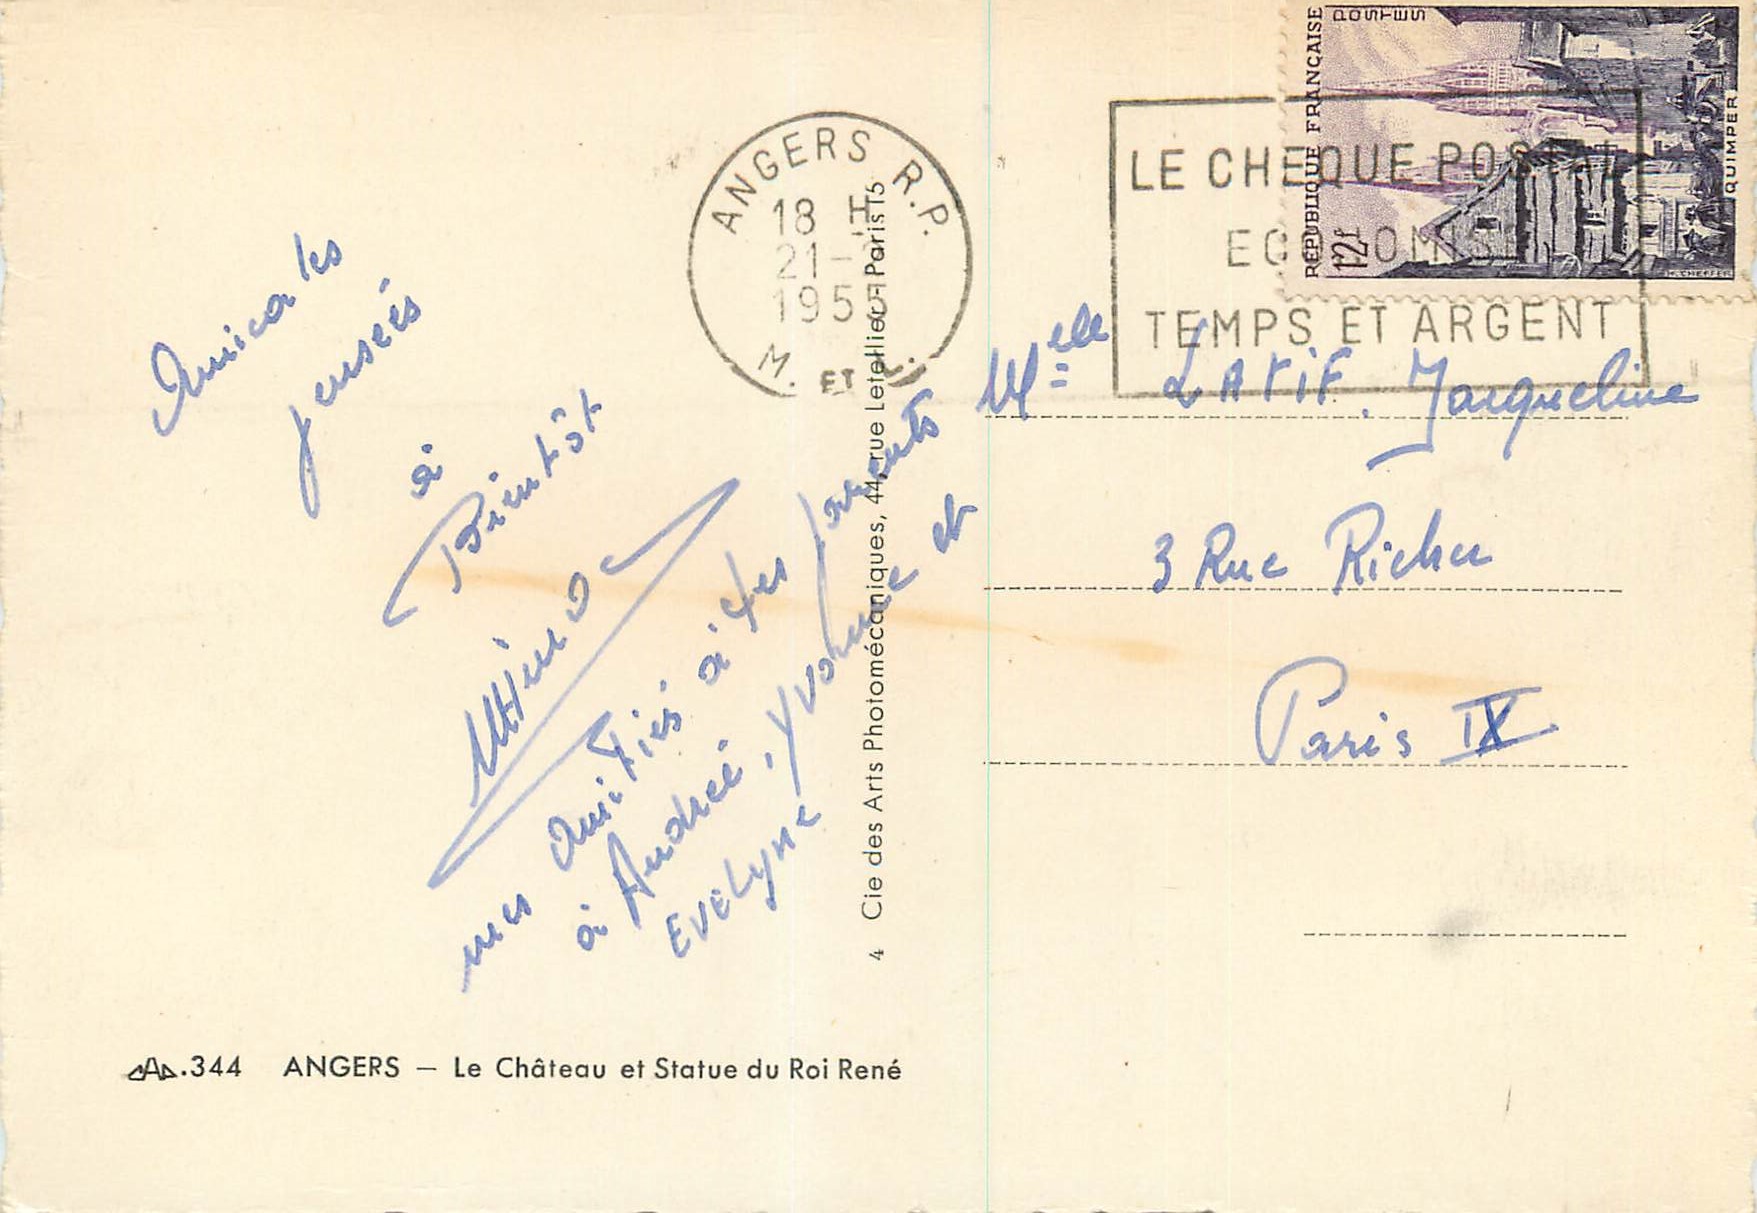 Amicales
pensées
à
Bientôt
mes Amitiés à tes parents
à Andreé, Yvonne et
Evelyne
ANGERS R.P.
18 H
21-
1955
M. ET L.
4 Cie des Arts Photomécaniques, 44, rue Letellier - Paris 15
LE CHEQUE POSTAL
ECONOMISE
TEMPS ET ARGENT
REPUBLIQUE FRANÇAISE
POSTES
12f
QUIMPER
H. CHEFFER
Melle LATIF. Jacqueline
3 Rue Richer
Paris IX
.344 ANGERS — Le Château et Statue du Roi René